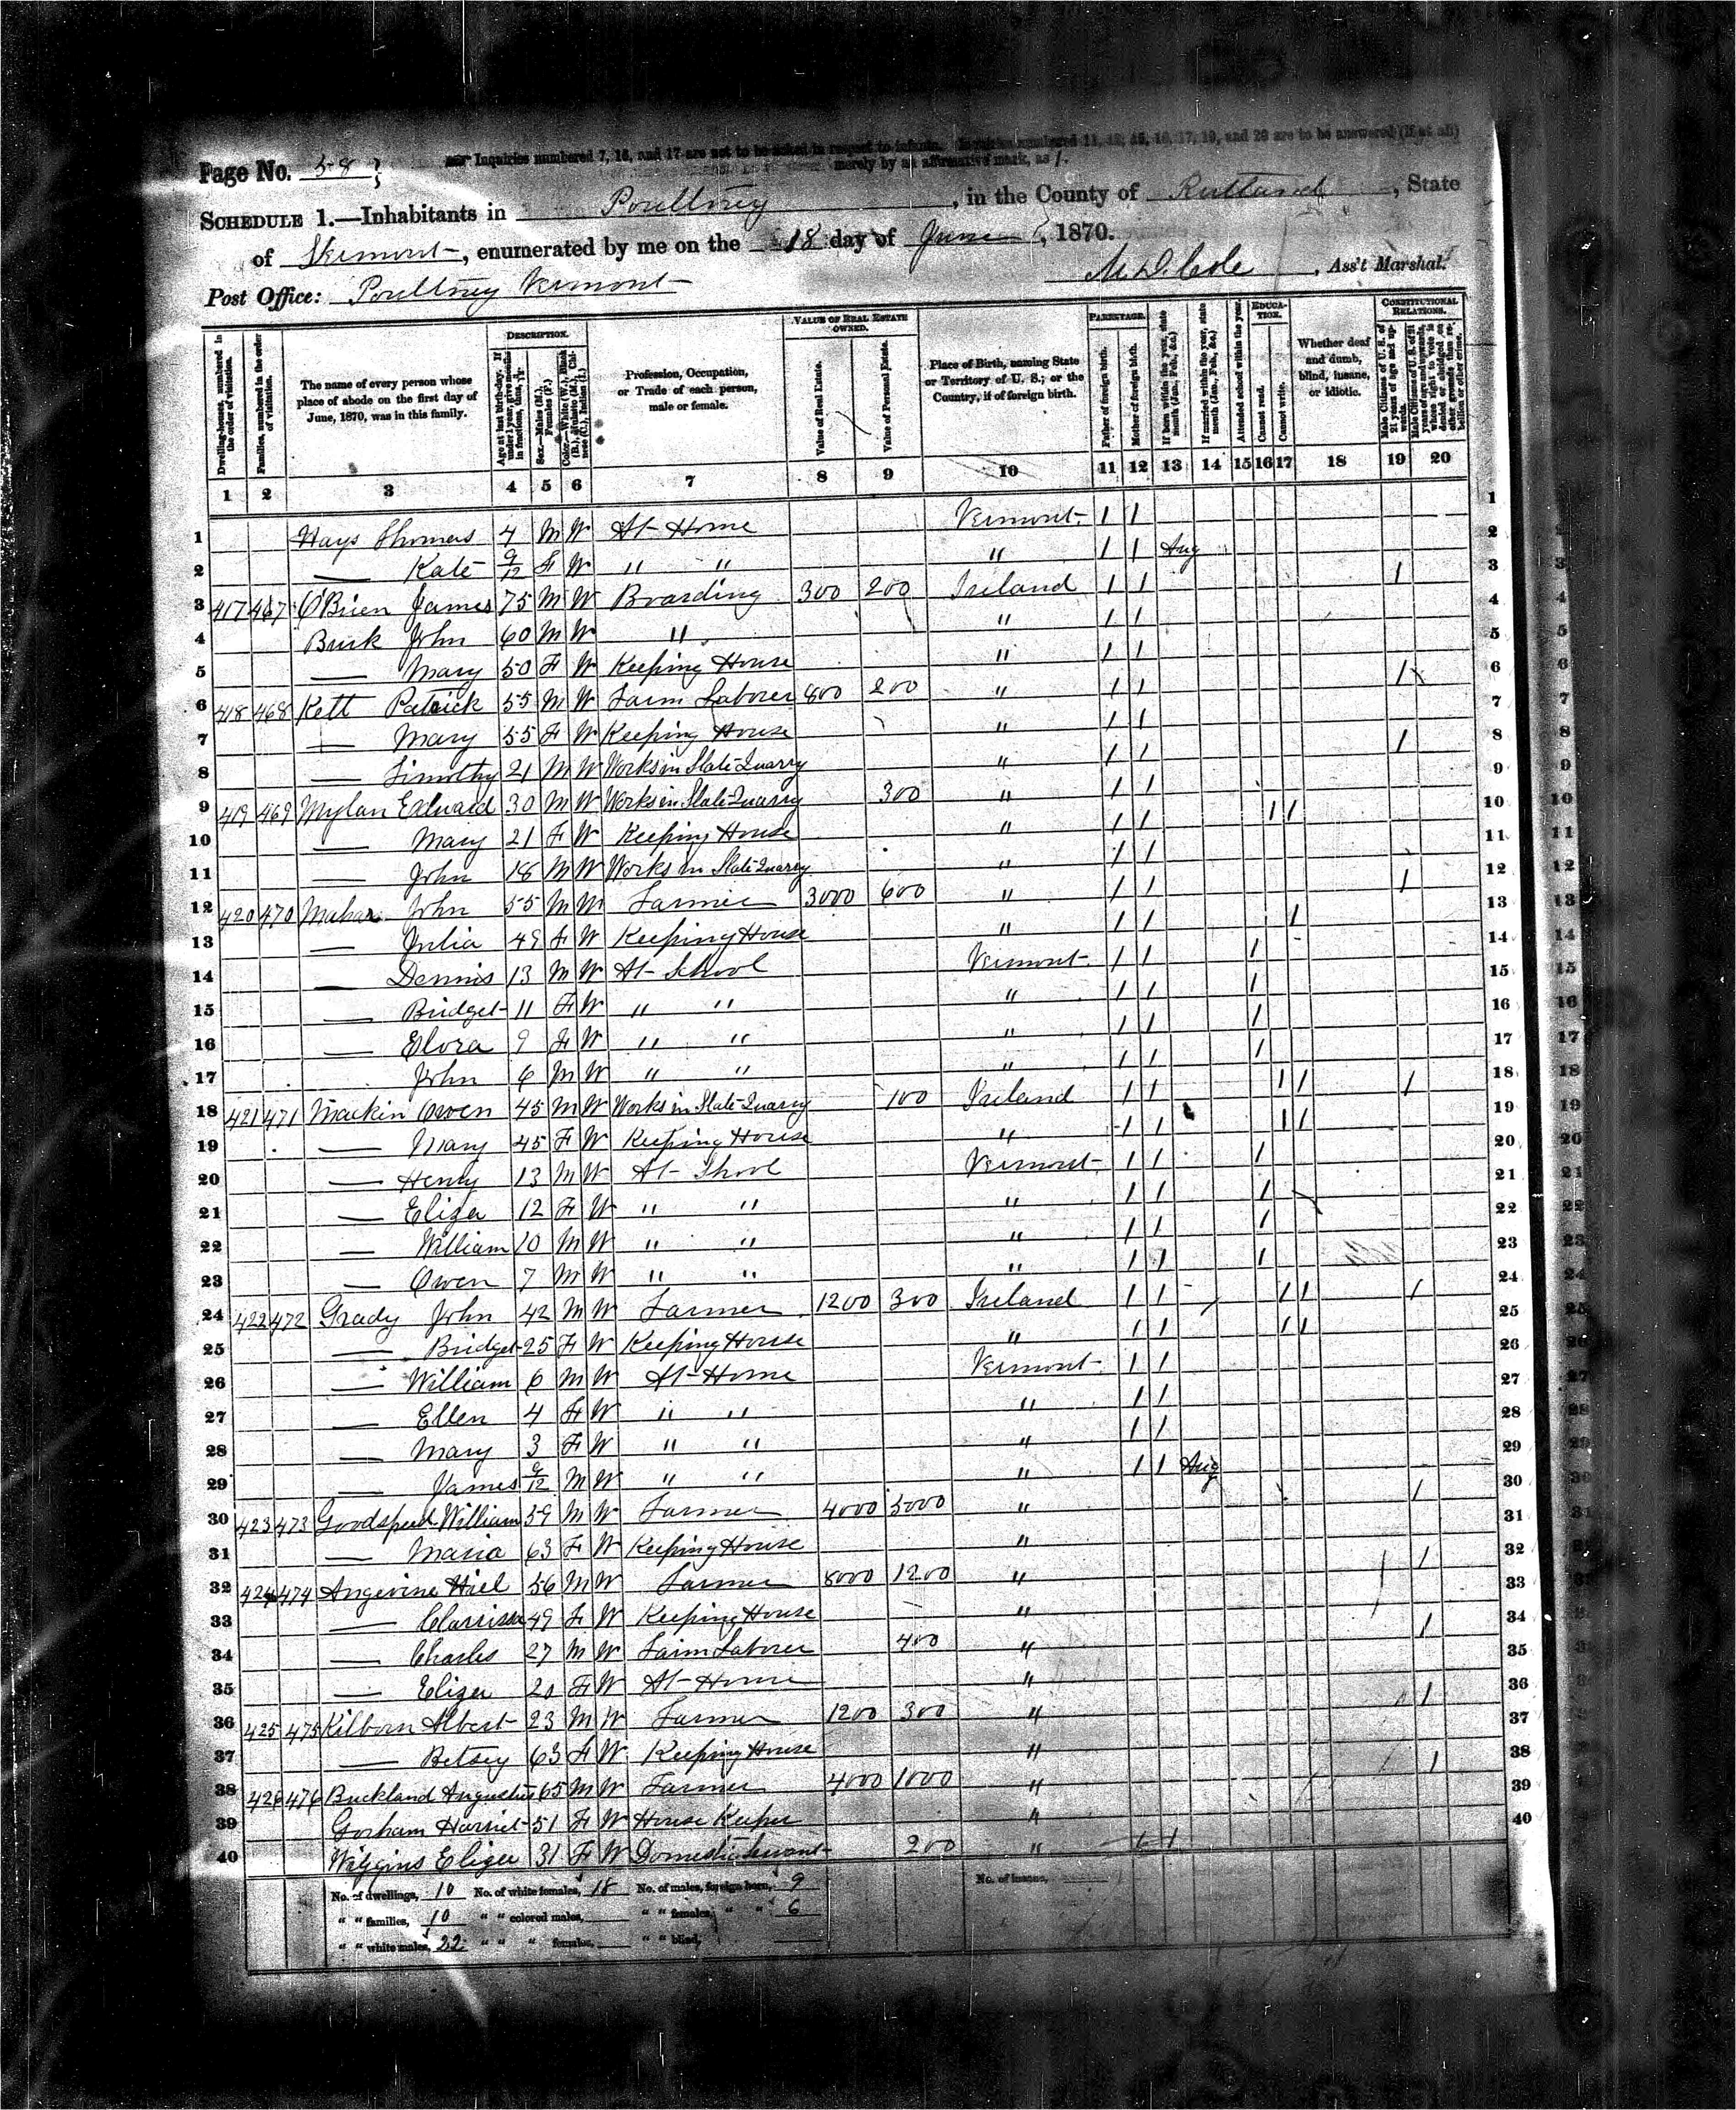 Page No. 58
Inquiries numbered 7, 16, and 17 are not to be asked in respect to infants. Inquiries numbered 11, 12, 15, 16, 17, 19, and 20 are to be answered (if at all)
merely by an affirmative mark, as /.
SCHEDULE 1.—Inhabitants in Poultney, in the County of Rutland, State
of Vermont, enumerated by me on the 18 day of June, 1870.
Post Office: Poultney Vermont
M. D. Cole, Ass't Marshal.
Dwelling-houses, numbered in the order of visitation.
Families, numbered in the order of visitation.
The name of every person whose place of abode on the first day of June, 1870, was in this family.
DESCRIPTION.
Age at last birth-day. If under 1 year, give months in fractions, thus, 3/12
Sex.—Males (M.), Females (F.)
Color.—White (W.), Black (B.), Mulatto (M.), Chinese (C.), Indian (I.)
Profession, Occupation, or Trade of each person, male or female.
VALUE OF REAL ESTATE OWNED.
Value of Real Estate.
Value of Personal Estate.
Place of Birth, naming State or Territory of U. S.; or the Country, if of foreign birth.
PARENTAGE.
Father of foreign birth.
Mother of foreign birth.
If born within the year, state month (Jan., Feb., &c.)
If married within the year, state month (Jan., Feb., &c.)
Attended school within the year.
EDUCATION.
Cannot read.
Cannot write.
Whether deaf and dumb, blind, insane, or idiotic.
CONSTITUTIONAL RELATIONS.
Male Citizens of U. S. of 21 years of age and upwards.
Male Citizens of U. S. of 21 years of age and upwards, whose right to vote is denied or abridged on other grounds than rebellion or other crime.
1 2 3 4 5 6 7 8 9 10 11 12 13 14 15 16 17 18 19 20
1 Hays Thomas 4 M W At Home Vermont / / 1
2 — Kate 9/12 F W " " " / / Aug 2
3 417 467 O'Brien James 75 M W Boarding 300 200 Ireland / / / 3
4 Burk John 60 M W " " / / 4
5 — Mary 50 F W Keeping House " / / 5
6 418 468 Kett Patrick 55 M W Farm Laborer 800 200 " / / / 6
7 — Mary 55 F W Keeping House " / / 7
8 — Timothy 21 M W Works in Slate Quarry " / / / 8
9 419 469 Mylan Edward 30 M W Works in Slate Quarry 300 " / / 9
10 — Mary 21 F W Keeping House " / / / / 10
11 — John 18 M W Works in Slate Quarry " / / 11
12 420 470 Mahar John 55 M M Farmer 3000 600 " / / / 12
13 — Julia 49 F W Keeping House " / / / 13
14 — Dennis 13 M W At School Vermont / / / 14
15 — Bridget 11 F W " " " / / / 15
16 — Elora 9 F W " " " / / / 16
17 John 6 M W " " " / / / 17
18 421 471 Mackin Owen 45 M W Works in Slate Quarry 100 Ireland / / / / / 18
19 — Mary 45 F W Keeping House " / / / / 19
20 — Henry 13 M W At Shool Vermont / / / 20
21 — Eliza 12 F W " " " / / / 21
22 — William 10 M W " " " / / / 22
23 — Owen 7 M W " " " / / / 23
24 422 472 Grady John 42 M W Farmer 1200 300 Ireland / / / / / 24
25 — Bridget 25 F W Keeping House " / / / / 25
26 — William 6 M W At Home Vermont / / 26
27 — Ellen 4 F W " " " / / 27
28 — Mary 3 F W " " " / / 28
29 — James 9/12 M W " " " / / Aug 29
30 423 473 Goodspeed William 59 M W Farmer 4000 5000 " / 30
31 — Maria 63 F W Keeping House " 31
32 424 474 Angevine Hiel 56 M W Farmer 8000 1200 " / 32
33 — Clarrissa 49 F W Keeping House " 33
34 — Charles 27 M W Farm Laborer 400 " / 34
35 — Eliza 20 F W At Home " 35
36 425 475 Kilborn Albert 23 M W Farmer 1200 300 " / 36
37 — Betsey 63 F W Keeping House " 37
38 426 476 Buckland Augustus 65 M W Farmer 4000 1000 " / 38
39 Gorham Harriet 51 F W House Keeper " 39
40 Wiggins Eliza 31 F W Domestic Servant 200 " / / 40
No. of dwellings, 10 No. of white females, 18 No. of males, foreign born, 9 No. of insane,
" " families, 10 " " colored males, " " females, " " 6
" " white males, 22 " " " females, " " blind,